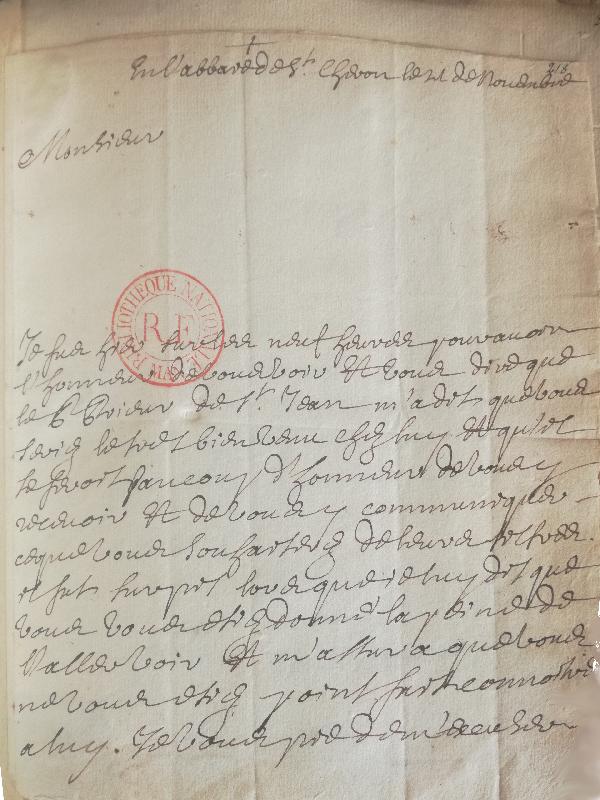 218
En l'abbaye de St. Cheron le 21 de Novembre
Monsieur
BIBLIOTHEQUE NATIONALE
R.F.
MAN
Je fus hier sur les neuf heures pour avoir
l'honneur de vous voir et vous dire que
le P Prieur de St. Jean m'a dit que vous
seriez le tres bien venu chez luy et qu'il
se feroit beaucoup d'honneur de vous y
recevoir et de vous y communiquer
ce que vous souhaiterez de leurs tiltres.
il fut surpris lors que ie luy dis que
vous vous etiez donné la peine de
l'aller voir et m'assura que vous
ne vous etiez point fait connoitre
a luy. Je vous prie de m'excuser